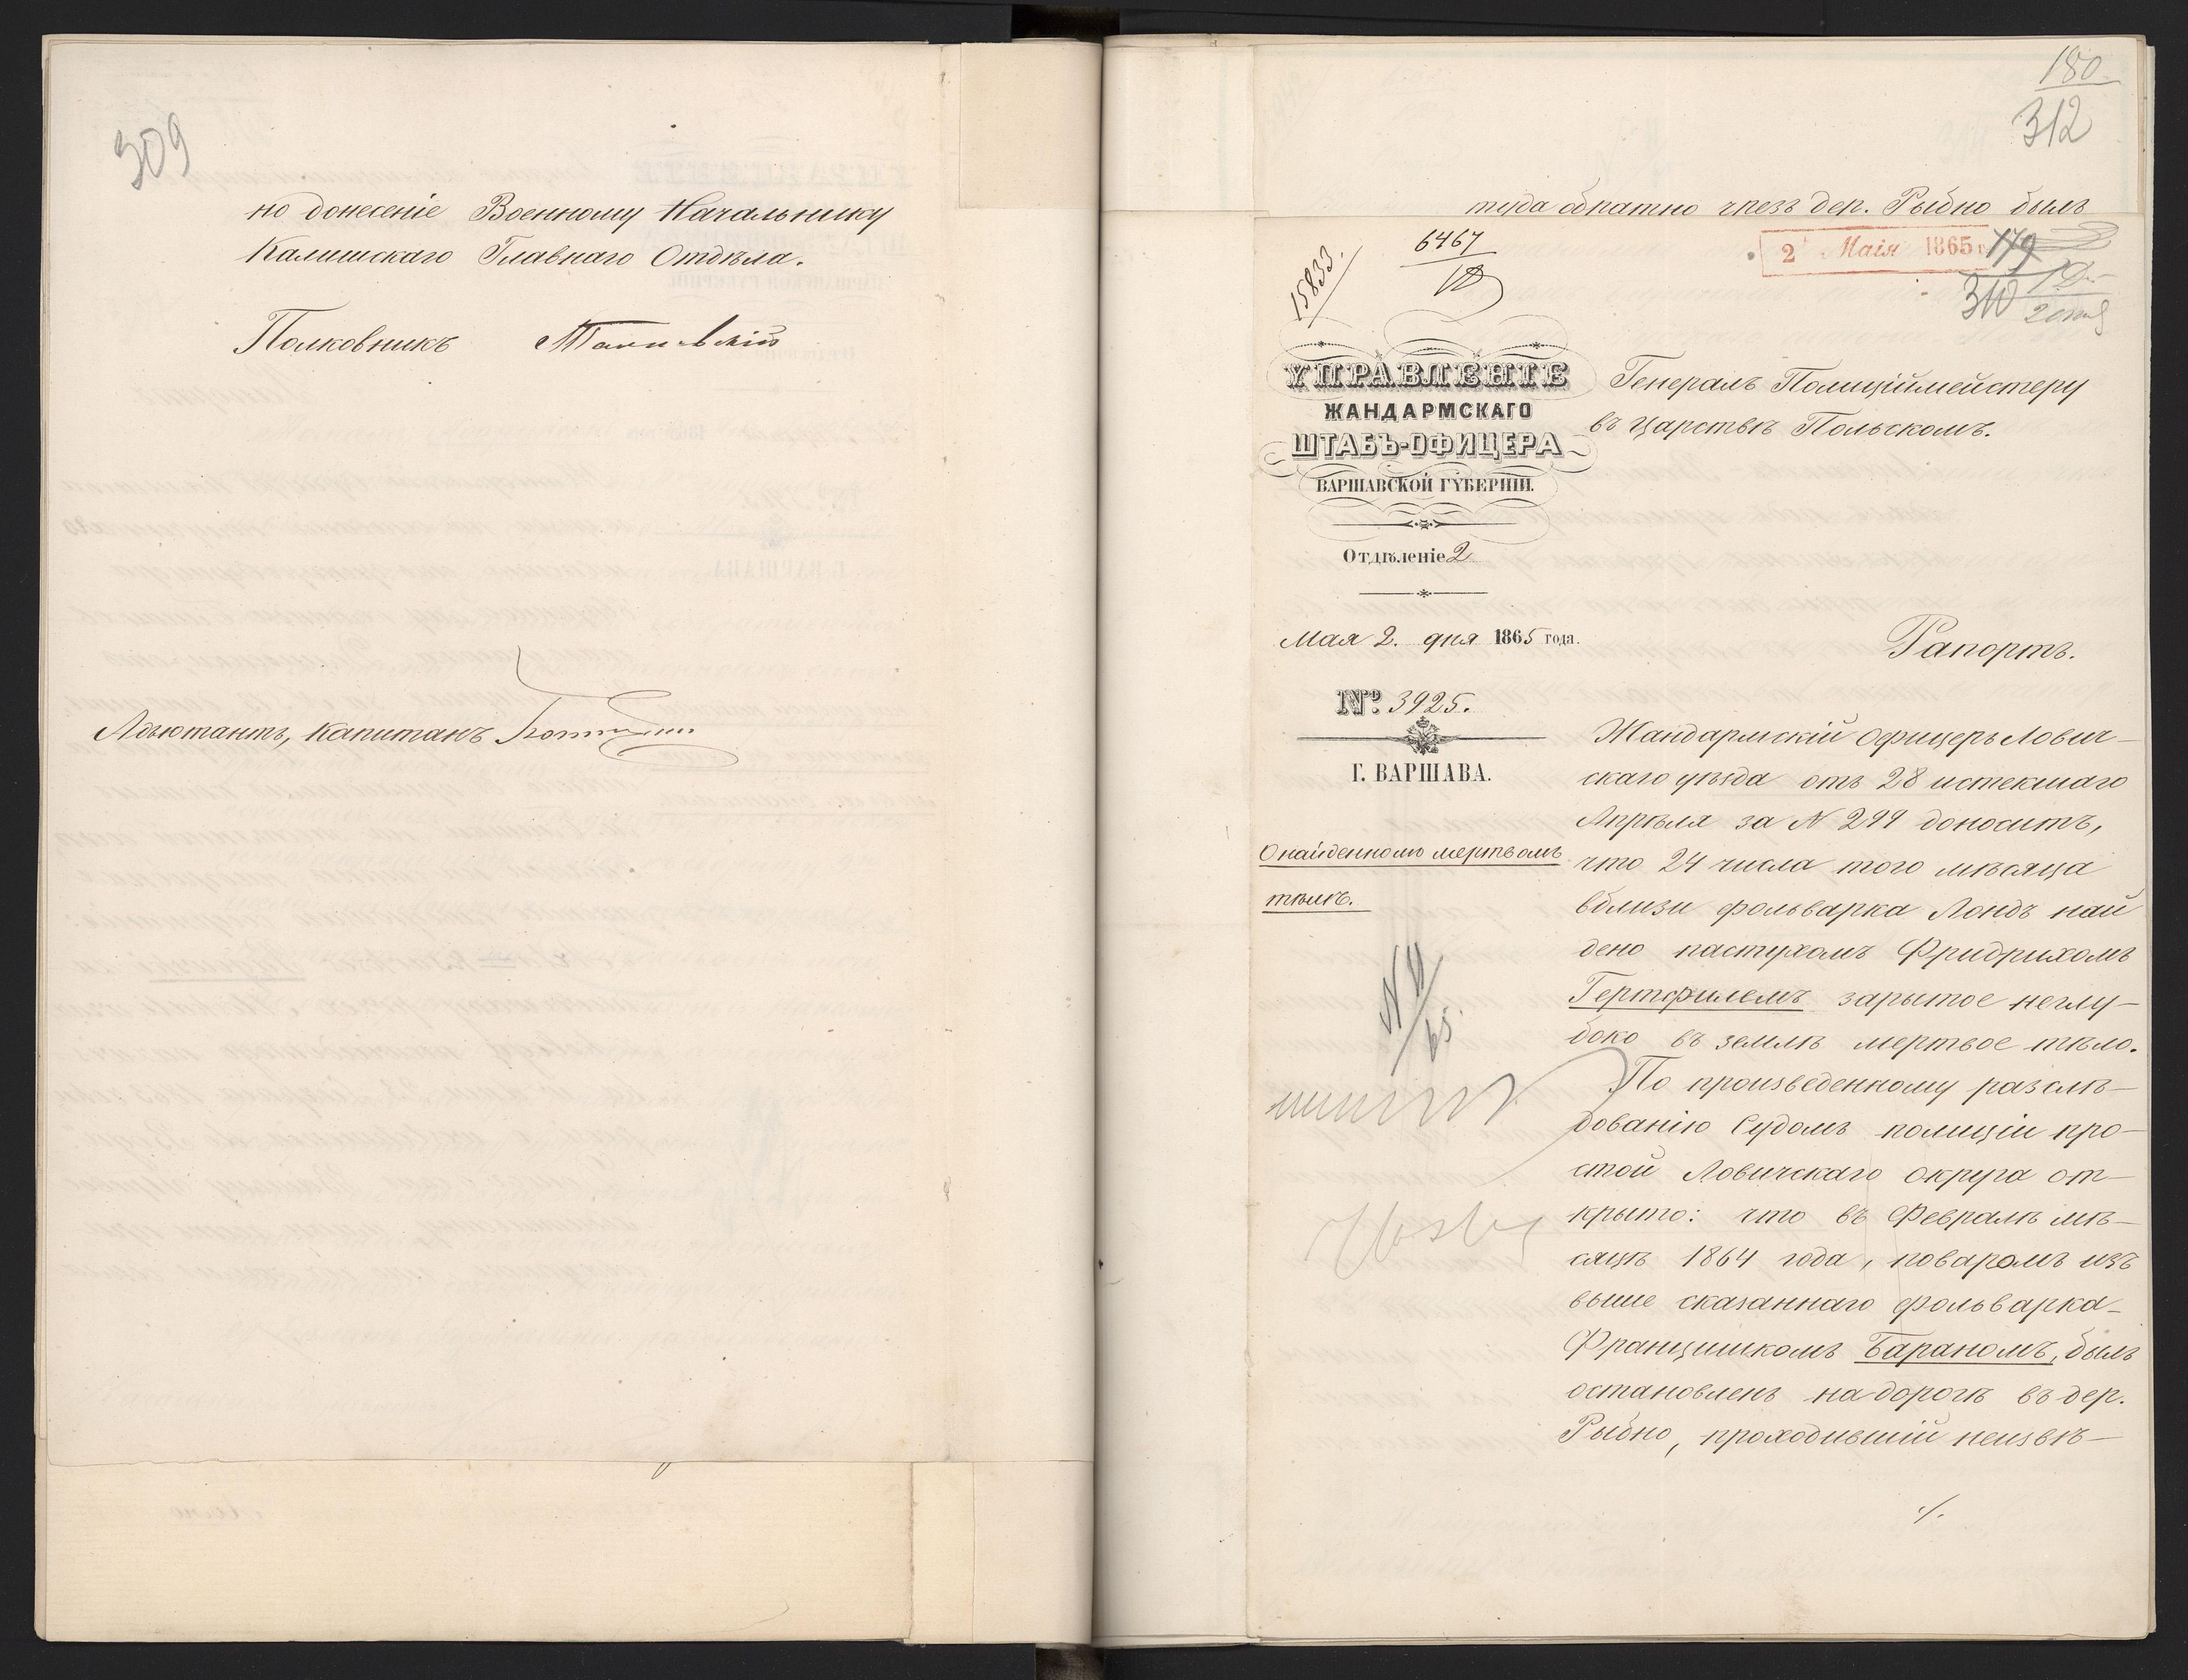 309
но донесеніе Военному Начальнику
Калишскаго Главнаго Отдѣла.
Полковникъ
Адъютантъ, капитанъ
180
312
туда обратно чрезъ дер. Рыбно былъ
15833.
6467
2 Маія 1865 г.
179
310
УПРАВЛЕНІЕ
ЖАНДАРМСКАГО
ШТАБЪ-ОФИЦЕРА
ВАРШАВСКОЙ ГУБЕРНІИ.
Отдѣленіе 2
Мая 2. дня 1865 года.
№ 3925.
Г. ВАРШАВА.
О найденномъ мертвомъ
тѣлѣ.
Генералъ Полиціймейстеру
въ Царствѣ Польскомъ.
Рапортъ.
Жандармскій Офицеръ Лович
скаго уѣзда отъ 28 истекшаго
Апрѣля за N 299 доноситъ,
что 24 числа того мѣсяца
вблизи фольварка Лондъ най
дено пастухомъ Фридрихомъ
Гертфилемъ зарытое неглу-
боко въ землѣ мертвое тѣло.
По произведенному разслѣ-
дованію Судомъ полиціи про-
стой Ловичскаго округа от-
крыто: что въ Февралѣ мѣ-
сяцѣ 1864 года, поваромъ изъ
выше сказаннаго фольварка-
Францишкомъ Бараномъ, былъ
остановленъ на дорогѣ въ дер.
Рыбно, проходившій неизвѣ-
./.